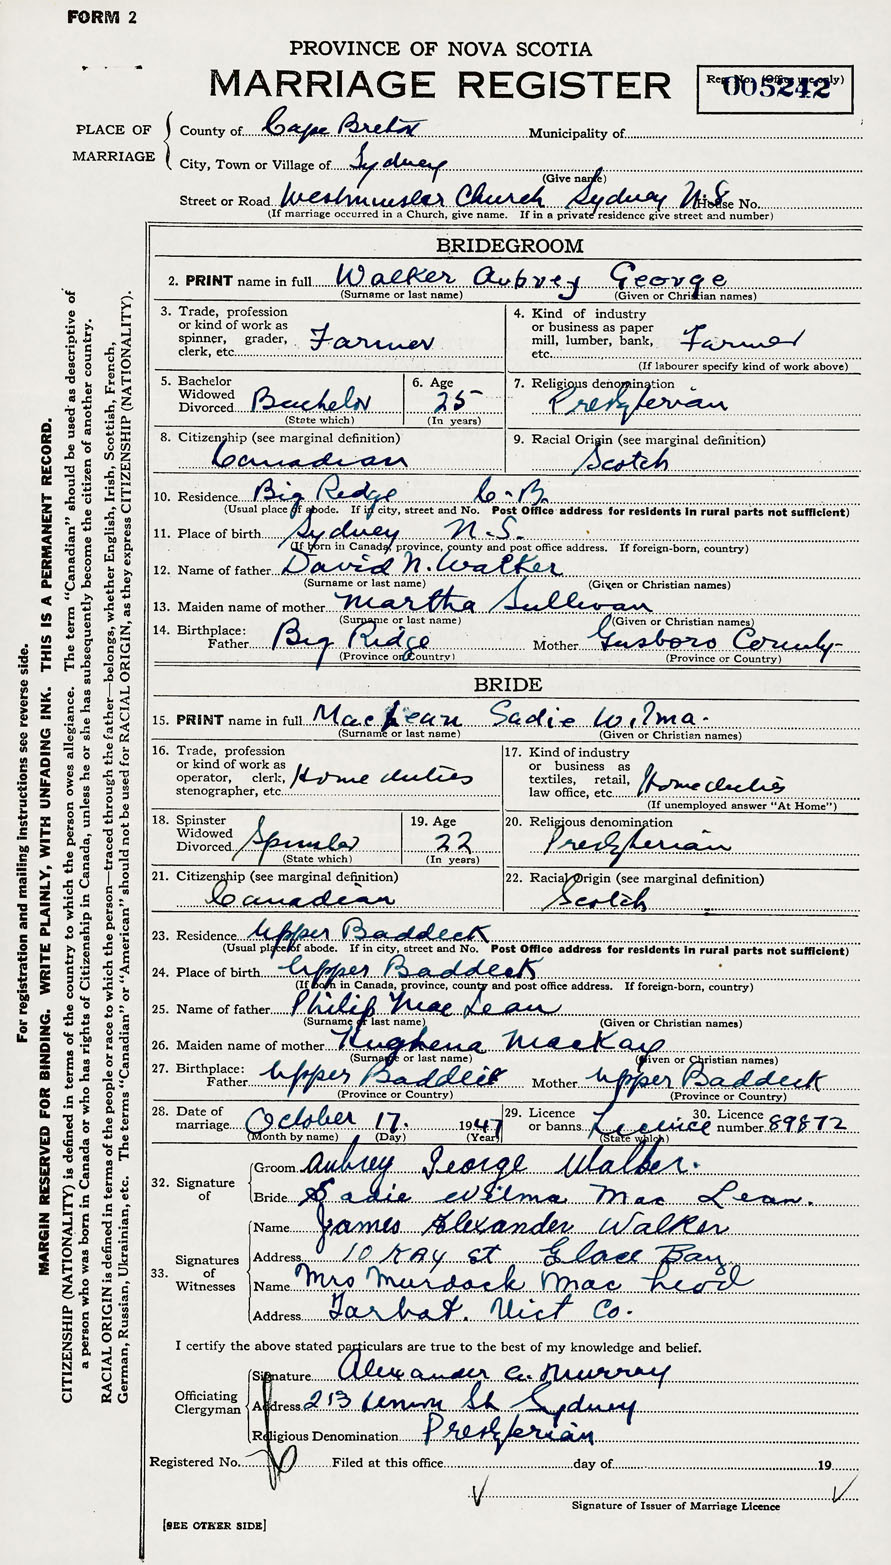 FORM 2
PROVINCE OF NOVA SCOTIA
MARRIAGE REGISTER
Reg. No. (Office use only)
005242
PLACE OF MARRIAGE
County of Cape Breton Municipality of
City, Town or Village of Sydney
(Give name)
Street or Road Westminster Church Sydney N.S. House No.
(If marriage occurred in a Church, give name. If in a private residence give street and number)
BRIDEGROOM
2. PRINT name in full Walker Aubrey George
(Surname or last name) (Given or Christian names)
3. Trade, profession or kind of work as spinner, grader, clerk, etc. Farmer
4. Kind of industry or business as paper mill, lumber, bank, etc. Farmer
(If labourer specify kind of work above)
5. Bachelor Widowed Divorced Bachelor
(State which)
6. Age 25
(In years)
7. Religious denomination Presbyterian
8. Citizenship (see marginal definition) Canadian
9. Racial Origin (see marginal definition) Scotch
10. Residence Big Ridge C.B.
(Usual place of abode. If in city, street and No. Post Office address for residents in rural parts not sufficient)
11. Place of birth Sydney N.S.
(If born in Canada, province, county and post office address. If foreign-born, country)
12. Name of father David N. Walker
(Surname or last name) (Given or Christian names)
13. Maiden name of mother Martha Sullivan
(Surname or last name) (Given or Christian names)
14. Birthplace: Father Big Ridge Mother Gusboro County
(Province or Country) (Province or Country)
BRIDE
15. PRINT name in full MacLean Sadie Wilma.
(Surname or last name) (Given or Christian names)
16. Trade, profession or kind of work as operator, clerk, stenographer, etc. Home duties
17. Kind of industry or business as textiles, retail, law office, etc. Home duties
(If unemployed answer "At Home")
18. Spinster Widowed Divorced Spinster
(State which)
19. Age 22
(In years)
20. Religious denomination Presbyterian
21. Citizenship (see marginal definition) Canadian
22. Racial Origin (see marginal definition) Scotch
23. Residence Upper Baddeck
(Usual place of abode. If in city, street and No. Post Office address for residents in rural parts not sufficient)
24. Place of birth Upper Baddeck
(If born in Canada, province, county and post office address. If foreign-born, country)
25. Name of father Philip MacLean
(Surname or last name) (Given or Christian names)
26. Maiden name of mother Hughena MacKay
(Surname or last name) (Given or Christian names)
27. Birthplace: Father Upper Baddeck Mother Upper Baddeck
(Province or Country) (Province or Country)
28. Date of marriage October 17. 1947
(Month by name) (Day) (Year)
29. Licence or banns Licence
(State which)
30. Licence number 89872
32. Signature of
Groom Aubrey George Walker.
Bride Sadie Wilma MacLean.
33. Signatures of Witnesses
Name James Alexander Walker
Address 10 Kay St Glace Bay
Name Mrs Murdock MacLeod
Address Tarbot. Vict Co.
I certify the above stated particulars are true to the best of my knowledge and belief.
Officiating Clergyman
Signature Alexander A. Murray
Address 213 St Sydney
Religious Denomination Presbyterian
Registered No. Filed at this office day of 19
Signature of Issuer of Marriage Licence
[SEE OTHER SIDE]
For registration and mailing instructions see reverse side.
MARGIN RESERVED FOR BINDING. WRITE PLAINLY, WITH UNFADING INK. THIS IS A PERMANENT RECORD.
CITIZENSHIP (NATIONALITY) is defined in terms of the country to which the person owes allegiance. The term "Canadian" should be used as descriptive of
a person who was born in Canada or who has rights of Citizenship in Canada, unless he or she has subsequently become the citizen of another country.
RACIAL ORIGIN is defined in terms of the people or race to which the person—traced through the father—belongs, whether English, Irish, Scottish, French,
German, Russian, Ukrainian, etc. The terms "Canadian" or "American" should not be used for RACIAL ORIGIN, as they express CITIZENSHIP (NATIONALITY).